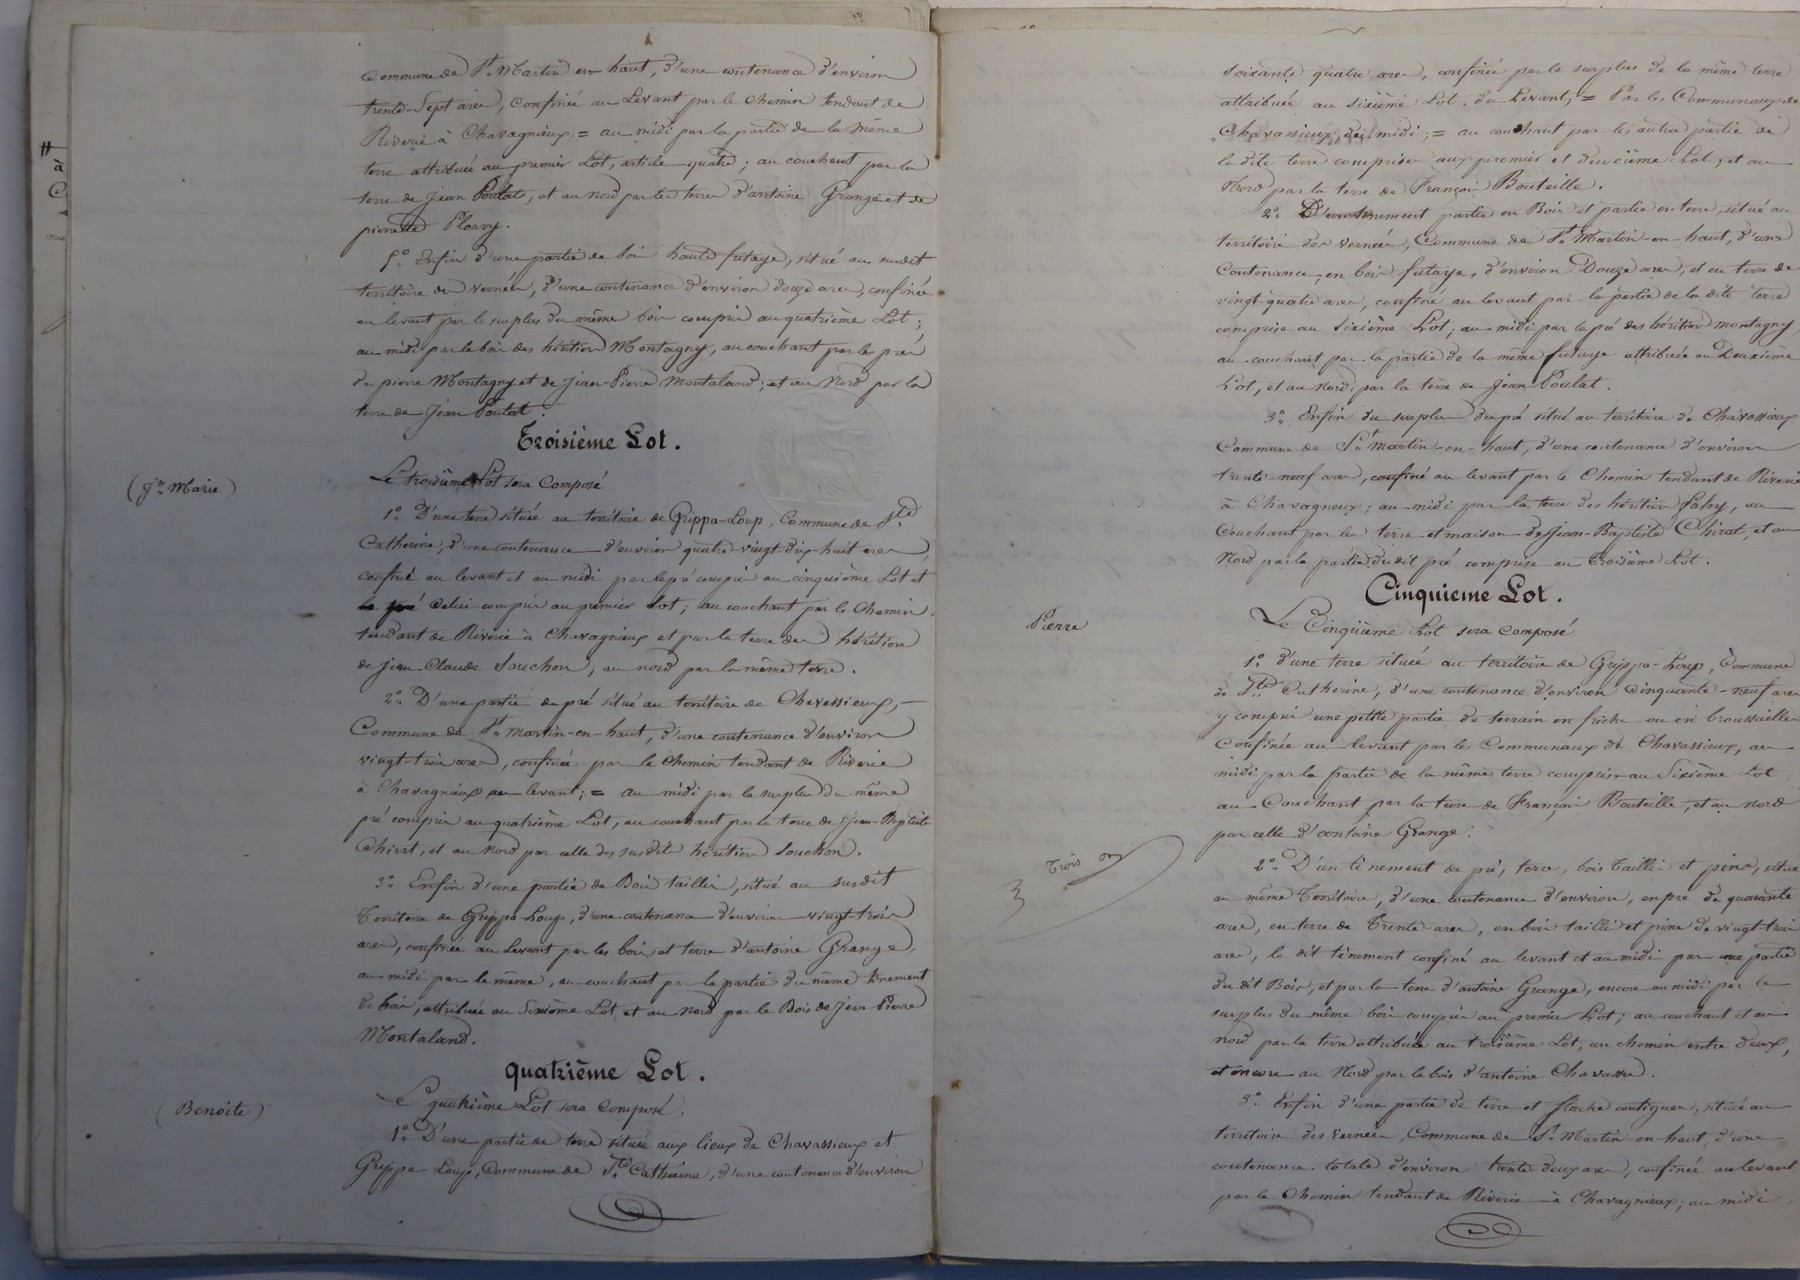 Commune de St. Martin en haut, d'une contenance d'environ
trente-Sept ares, confinée au Levant par le Chemin tendant de
Riverie à Chavagnieux; = au midi par la partie de la même
terre attribuée au premier Lot, article quatre; au couchant par la
terre de Jean Poulat, et au nord par les terres d'antoine Grange et de
pierrette Fleury.
5°. Enfin d'une partie de bois haute futaye, situé au susdit
territoire des Vernées, d'une contenance d'environ douze ares, confinée
au levant par le surplus du même bois compris au quatrième Lot;
au midi par le bois des héritiers Montagny, au couchant par les prés
de pierre Montagny et de Jean-Pierre Montaland; et au Nord par la
terre de Jean Poulat.
Troisième Lot.
(Jn. Marie)
Le troisième Lot sera Composé
1°. D'une terre située au territoire de Grippa-Loup, Commune de Ste.
Catherine, d'une contenance d'environ quatre-vingt-dix-huit ares,
confiné au levant et au midi par le pré compris au cinquième Lot et
le pré celui compris au premier Lot; au couchant par le Chemin
tendant de Riverie à Chavagnieux et par la terre des héritiers
de Jean-Claude Souchon; au nord par la même terre.
2°. D'une partie de pré situé au territoire de Chavassieux,
Commune de St. Martin-en-haut, d'une contenance d'environ
vingt-trois ares, confinée par le Chemin tendant de Riverie
à Chavagnieux au levant; = au midi par le surplus du même
pré compris au quatrième Lot, au couchant par la terre de Jean-Baptiste
Chirat, et au Nord par celle des susdits héritiers Souchon.
3°. Enfin d'une partie de Bois taillis, situé au susdit
Territoire de Grippa-Loup, d'une contenance d'environ vingt-trois
ares, confinée au Levant par les bois et terre d'antoine Grange,
au midi par le même, au couchant par la partie du même tènement
de bois, attribuée au Sixième Lot, et au nord par le Bois de Jean-Pierre
Montaland.
quatrième Lot.
(Benoite)
Le quatrième Lot sera Composé
1°. D'une partie de terre située aux lieux de Chavassieux et
Grippa-Loup, Commune de Ste. Catherine, d'une contenance d'environ
soixante quatre ares, confinée par le surplus de la même terre
attribuée au sixième Lot, du Levant; = Par les Communaux de
Chavassieux, de midi; = au couchant par les autres parties de
la dite terre comprises aux premier et deuxième Lot; et au
Nord par la terre de François Bouteille.
2°. D'un tènement partie en Bois et partie en terre, situé au
territoire des Vernées, Commune de St. Martin-en-haut, d'une
Contenance, en bois futaye, d'environ Douze ares, et en terre de
vingt-quatre ares, confiné au levant par la partie de la dite terre
comprise au Sixième Lot; au midi par le pré des héritiers Montagny,
au couchant par la partie de la même futaye attribuée au Deuxième
Lot, et au Nord, par la terre de Jean Poulat.
3°. Enfin du surplus du pré situé au territoire de Chavassieux
Commune de St. Martin-en-haut, d'une contenance d'environ
trente-neuf ares, confiné au levant par le Chemin tendant de Riverie
à Chavagneux; au midi par la terre des héritiers Fahy, au
Couchant par les terre et maison de Jean-Baptiste Chirat, et au
Nord par la partie du dit pré comprise au Troisième Lot.
Cinquieme Lot.
Pierre
Le Cinquième Lot sera composé
1°. d'une terre située au territoire de Grippa-Loup, Commune
de Ste. Catherine, d'une contenance d'environ Cinquante-neuf ares
y compris une petite partie de terrain en friche ou en broussailles
Confinée au levant par les Communaux de Chavassieux, au
midi par la partie de la même terre comprise au Sixième Lot;
au Couchant par la terre de François Bouteille, et au nord
par celle d'antoine Grange.
Trois
2°. D'un tènement de pré, terre, bois Taillis et pins, situé
au même Territoire, d'une contenance d'environ, en pré de quarante
ares, en terre de Trente ares, en bois taillis et pins de vingt-trois
ares, le dit tènement confiné au levant et au midi par une partie
du dit Bois, et par la terre d'antoine Grange, encore au midi par le
surplus du même bois compris au premier Lot; au couchant et au
nord par la terre attribuée au troisième Lot, un chemin entre deux,
et encore au Nord par le bois d'antoine Chavassu.
3°. Enfin d'une partie de terre et flache contigues, située au
territoire des Vernées, Commune de St. Martin-en-haut, d'une
contenance totale d'environ trente-deux ares, confinée au levant
par le Chemin tendant de Riverie à Chavagnieux; au midi